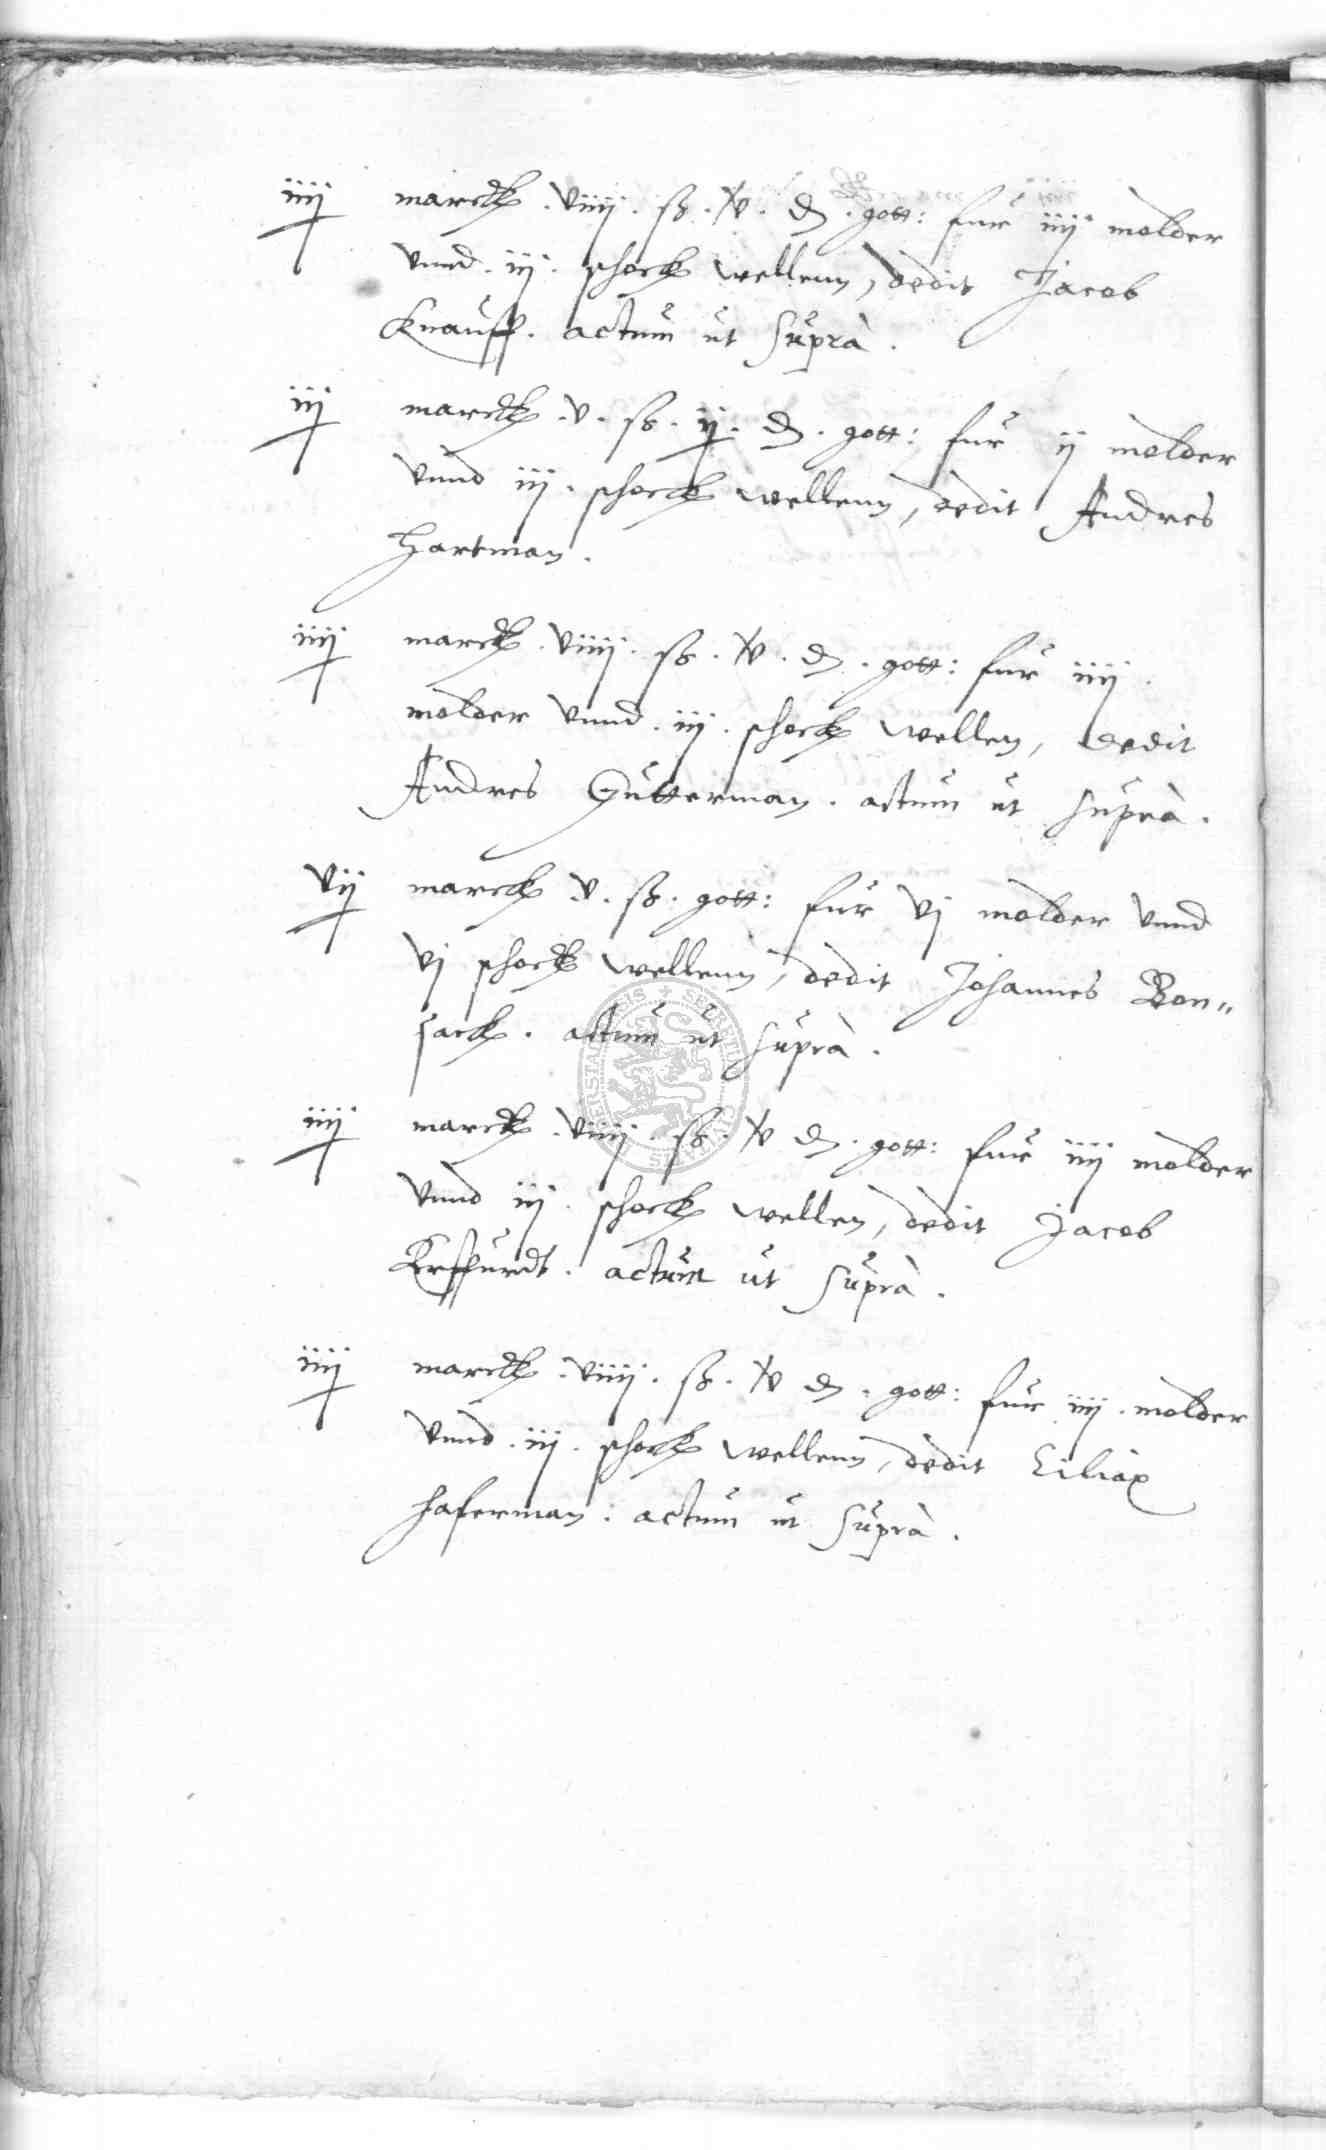 iiij marck . viiij . ß . v . d . gott: fur iiij molder
vnnd . iij . schock wellenn, dedit Jacob
Knauff . actum ut supra .
iij marck . v . ß . ij . d . gott: fur ij molder
vnnd iij . schock wellenn, dedit Andres
Hartman .
iiij marck . viiij . ß . v . d . gott: fur iiij .
molder vnnd . iij . schock wellen, dedit
Andres Gutterman . actum ut supra .
vij marck v . ß . gott: fur vj molder vnnd
vj schock wellenn, dedit Johannes Bon„
sack . actum ut supra .
iiij marck . viiij . ß . v d . gott: fur iiij molder
vnnd iij . schock wellen, dedit Jacob
Erffurdt . actum ut supra .
iiij marck . viiij . ß . v d . gott: fur iiij . molder
vnnd . iij . schock wellenn, dedit Ciliax
Haferman : actum ut supra .